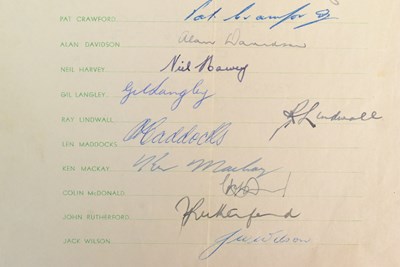 PAT CRAWFORD Pat Crawford
ALAN DAVIDSON Alan Davidson
NEIL HARVEY Neil Harvey
GIL LANGLEY Gil Langley
RAY LINDWALL R Lindwall
LEN MADDOCKS Maddocks
KEN MACKAY Ken Mackay
COLIN McDONALD
JOHN RUTHERFORD J Rutherford
JACK WILSON J W Wilson